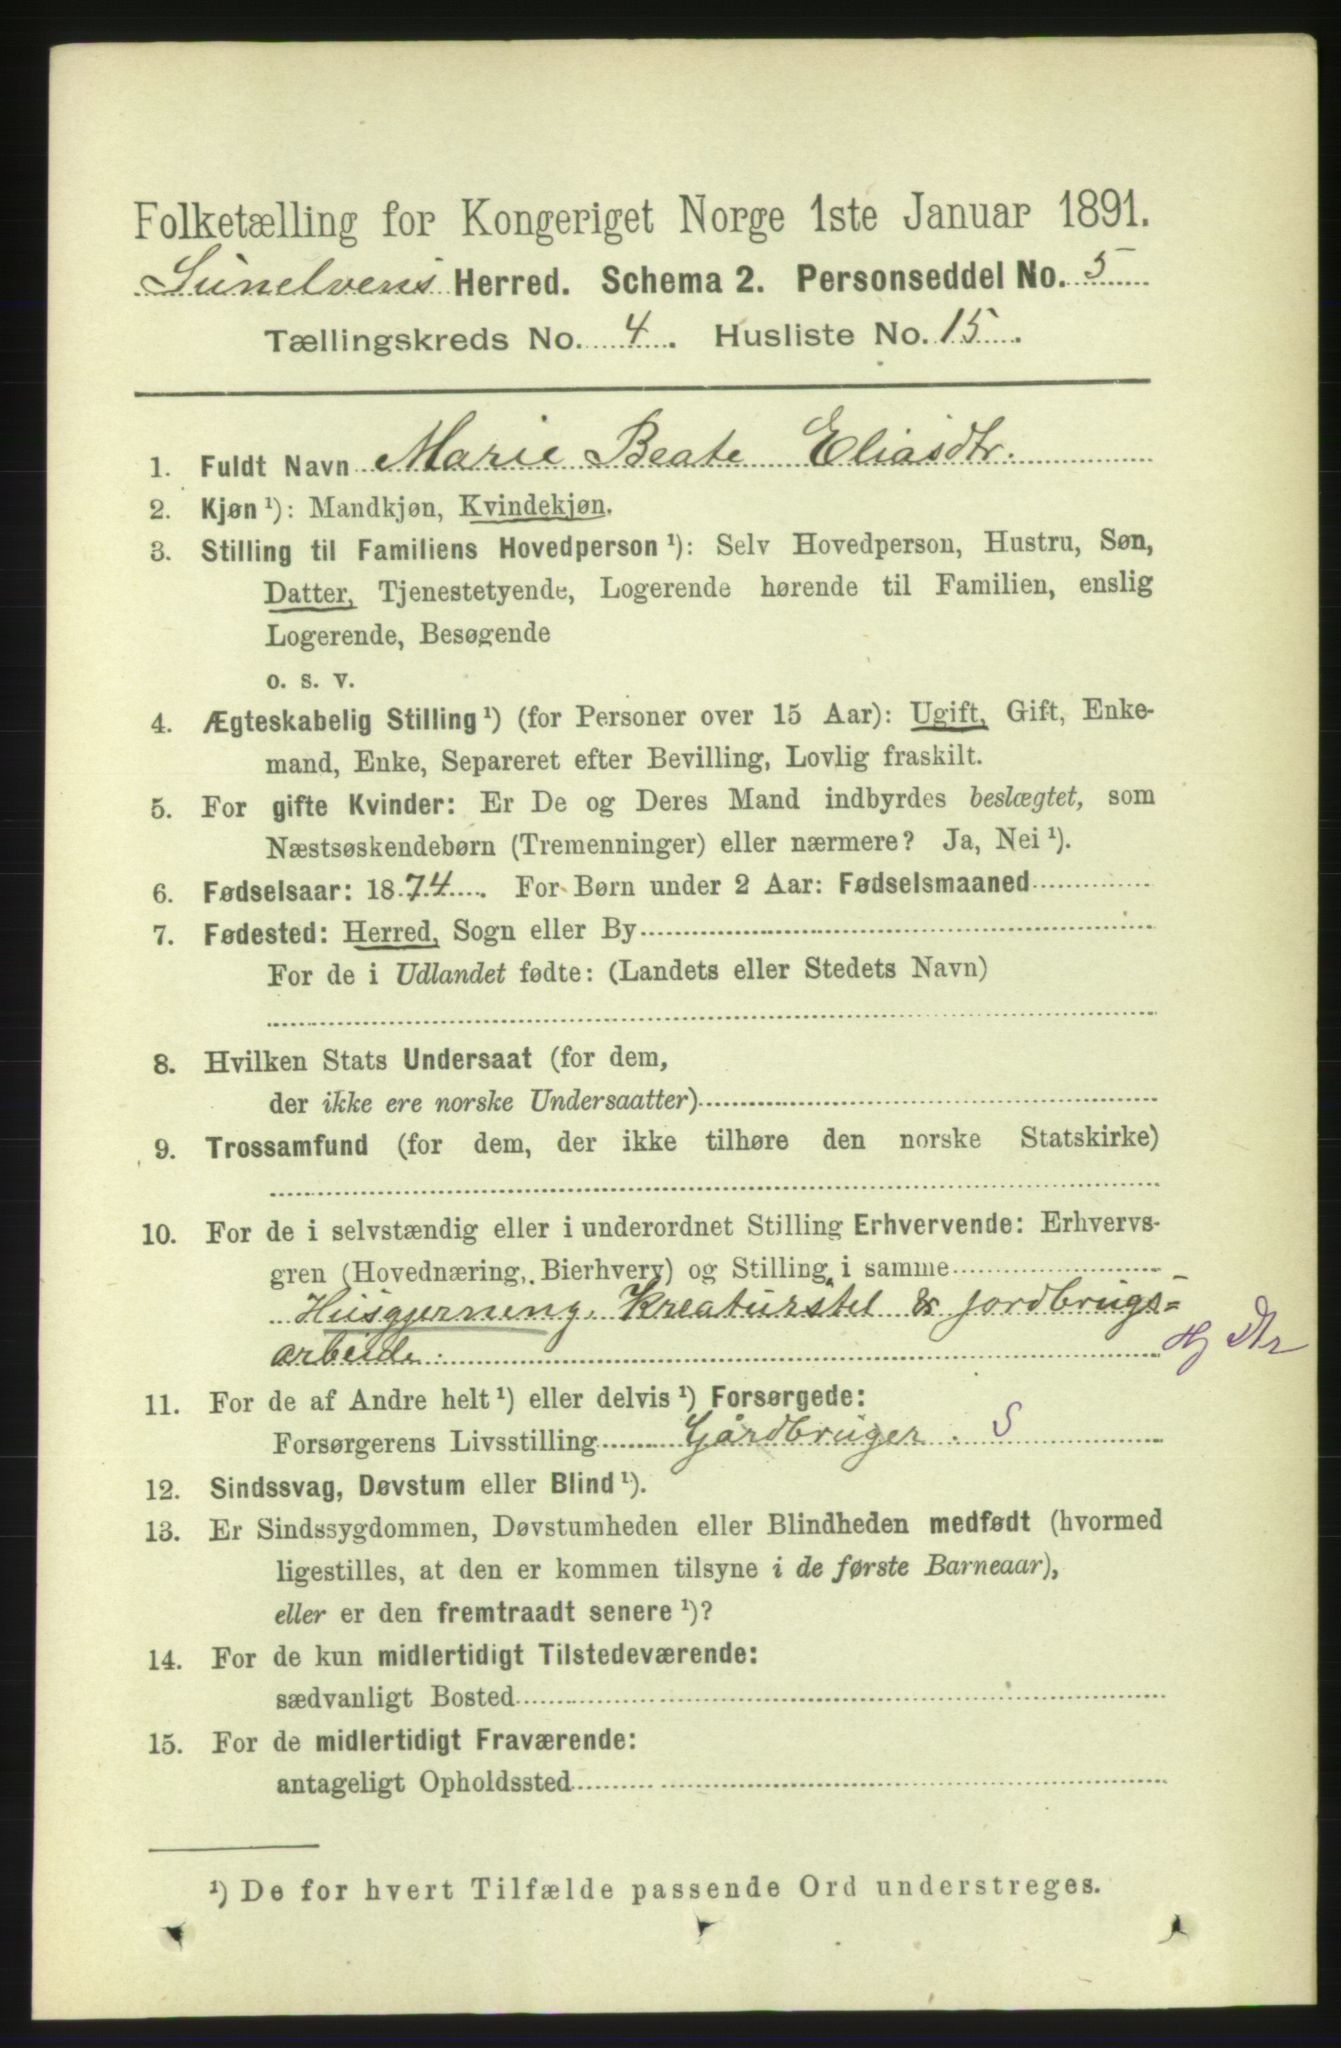 Folketælling for Kongeriget Norge 1ste Januar 1891.
Sunelvens Herred. Schema 2. Personseddel No. 5
Tællingskreds No. 4. Husliste No. 15.
1. Fuldt Navn Marie Beate Eliasdtr.
2. Kjøn ¹): Mandkjøn, Kvindekjøn.
3. Stilling til Familiens Hovedperson ¹): Selv Hovedperson, Hustru, Søn,
Datter, Tjenestetyende, Logerende hørende til Familien, enslig
Logerende, Besøgende
o. s. v.
4. Ægteskabelig Stilling ¹) (for Personer over 15 Aar): Ugift, Gift, Enke-
mand, Enke, Separeret efter Bevilling, Lovlig fraskilt.
5. For gifte Kvinder: Er De og Deres Mand indbyrdes beslægtet, som
Næstsøskendebørn (Tremenninger) eller nærmere? Ja, Nei ¹).
6. Fødselsaar: 1874. For Børn under 2 Aar: Fødselsmaaned
7. Fødested: Herred, Sogn eller By
For de i Udlandet fødte: (Landets eller Stedets Navn)
8. Hvilken Stats Undersaat (for dem,
der ikke ere norske Undersaatter)
9. Trossamfund (for dem, der ikke tilhøre den norske Statskirke)
10. For de i selvstændig eller i underordnet Stilling Erhvervende: Erhvervs-
gren (Hovednæring, Bierhverv) og Stilling i samme
Husgjerning, Kreaturstel & jordbrugs=
arbeide. Hj Dtr
11. For de af Andre helt ¹) eller delvis ¹) Forsørgede:
Forsørgerens Livsstilling Gårdbruger. S
12. Sindssvag, Døvstum eller Blind ¹).
13. Er Sindssygdommen, Døvstumheden eller Blindheden medfødt (hvormed
ligestilles, at den er kommen tilsyne i de første Barneaar),
eller er den fremtraadt senere ¹)?
14. For de kun midlertidigt Tilstedeværende:
sædvanligt Bosted
15. For de midlertidigt Fraværende:
antageligt Opholdssted
¹) De for hvert Tilfælde passende Ord understreges.